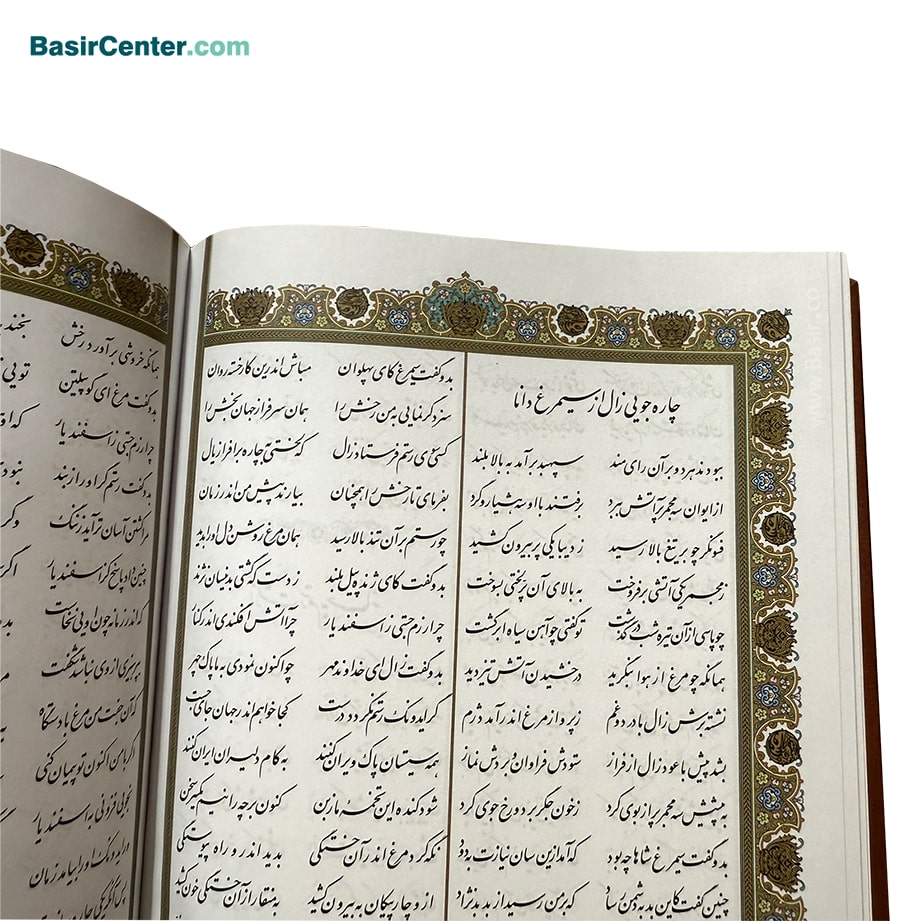 BasirCenter.com
چاره جویی زال از سیمرغ دانا
ببودند هر دو بر آن رای مند سپهبد برآمد به بالا بلند
از ایوان سه مجمر پر آتش ببرد برفتند با او سه هشیار و گرد
فسونگر چو بر تیغ بالا رسید ز دیبا یکی پر بیرون کشید
ز مجمر یکی آتشی برفروخت به بالای آن پر لختی بسوخت
چو پاسی از آن تیره شب درگذشت تو گفتی چو آهن سیاه ابر گشت
همانگه چو مرغ از هوا بنگرید درخشیدن آتش تیز دید
نشسته برش زال با درد و غم ز پرواز مرغ اندر آمد دژم
بشد پیش با عود زال از فراز ستودش فراوان و بردش نماز
به پیشش سه مجمر پر از بوی کرد ز خون جگر بر دو رخ جوی کرد
بدو گفت سیمرغ شاها چه بود که آمد ازین سان نیازت به دود
چنین گفت کاین بد به دشمن رساد که بر من رسید از بد بدنژاد
بدو گفت سیمرغ کای پهلوان مباش اندرین کار خسته روان
سزد گر نمایی به من رخش را همان سرفراز جهان بخش را
کسی سوی رستم فرستاد زال که لختی به چاره برافراز یال
بفرمای تا رخش را همچنان بیارند پیش من اندر زمان
چو رستم بر آن تند بالا رسید همان مرغ روشن دل او را بدید
بدو گفت کای ژنده پیل بلند ز دست که گشتی بدینسان نژند
چرا رزم جستی ز اسفندیار چرا آتش افکندی اندر کنار
بدو گفت زال ای خداوند مهر چو اکنون نمودی به ما پاک چهر
گر ایدونک رستم نگردد درست کجا خواهم اندر جهان جای جست
همه سیستان پاک ویران کنند به کام دلیران ایران کنند
شود کنده این تخمه ما ز بن کنون بر چه رانیم یکسر سخن
نگه کرد مرغ اندر آن خستگی بدید اندر و راه پیوستگی
از و چار پیکان به بیرون کشید به منقار از آن خستگی خون کشید
همانگه خروشی برآورد رخش بخند
بدو گفت مرغ ای گو پیلتن تویی
چرا رزم جستی ز اسفندیار که او
بدو گفت رستم گر او را ز بند نبود
مرا کشتن آسان تر آید ز ننگ وگر
چنین داد پاسخ کز اسفندیار اگر
که اندر زمانه چون اویی نخاست بد
بپرهیزی از وی نباشد شگفت
که آن جفت من مرغ با دستگاه
اگر با من اکنون تو پیمان کنی
نجویی فزونی به اسفندیار
ور ایدونک او را بیامد زمان